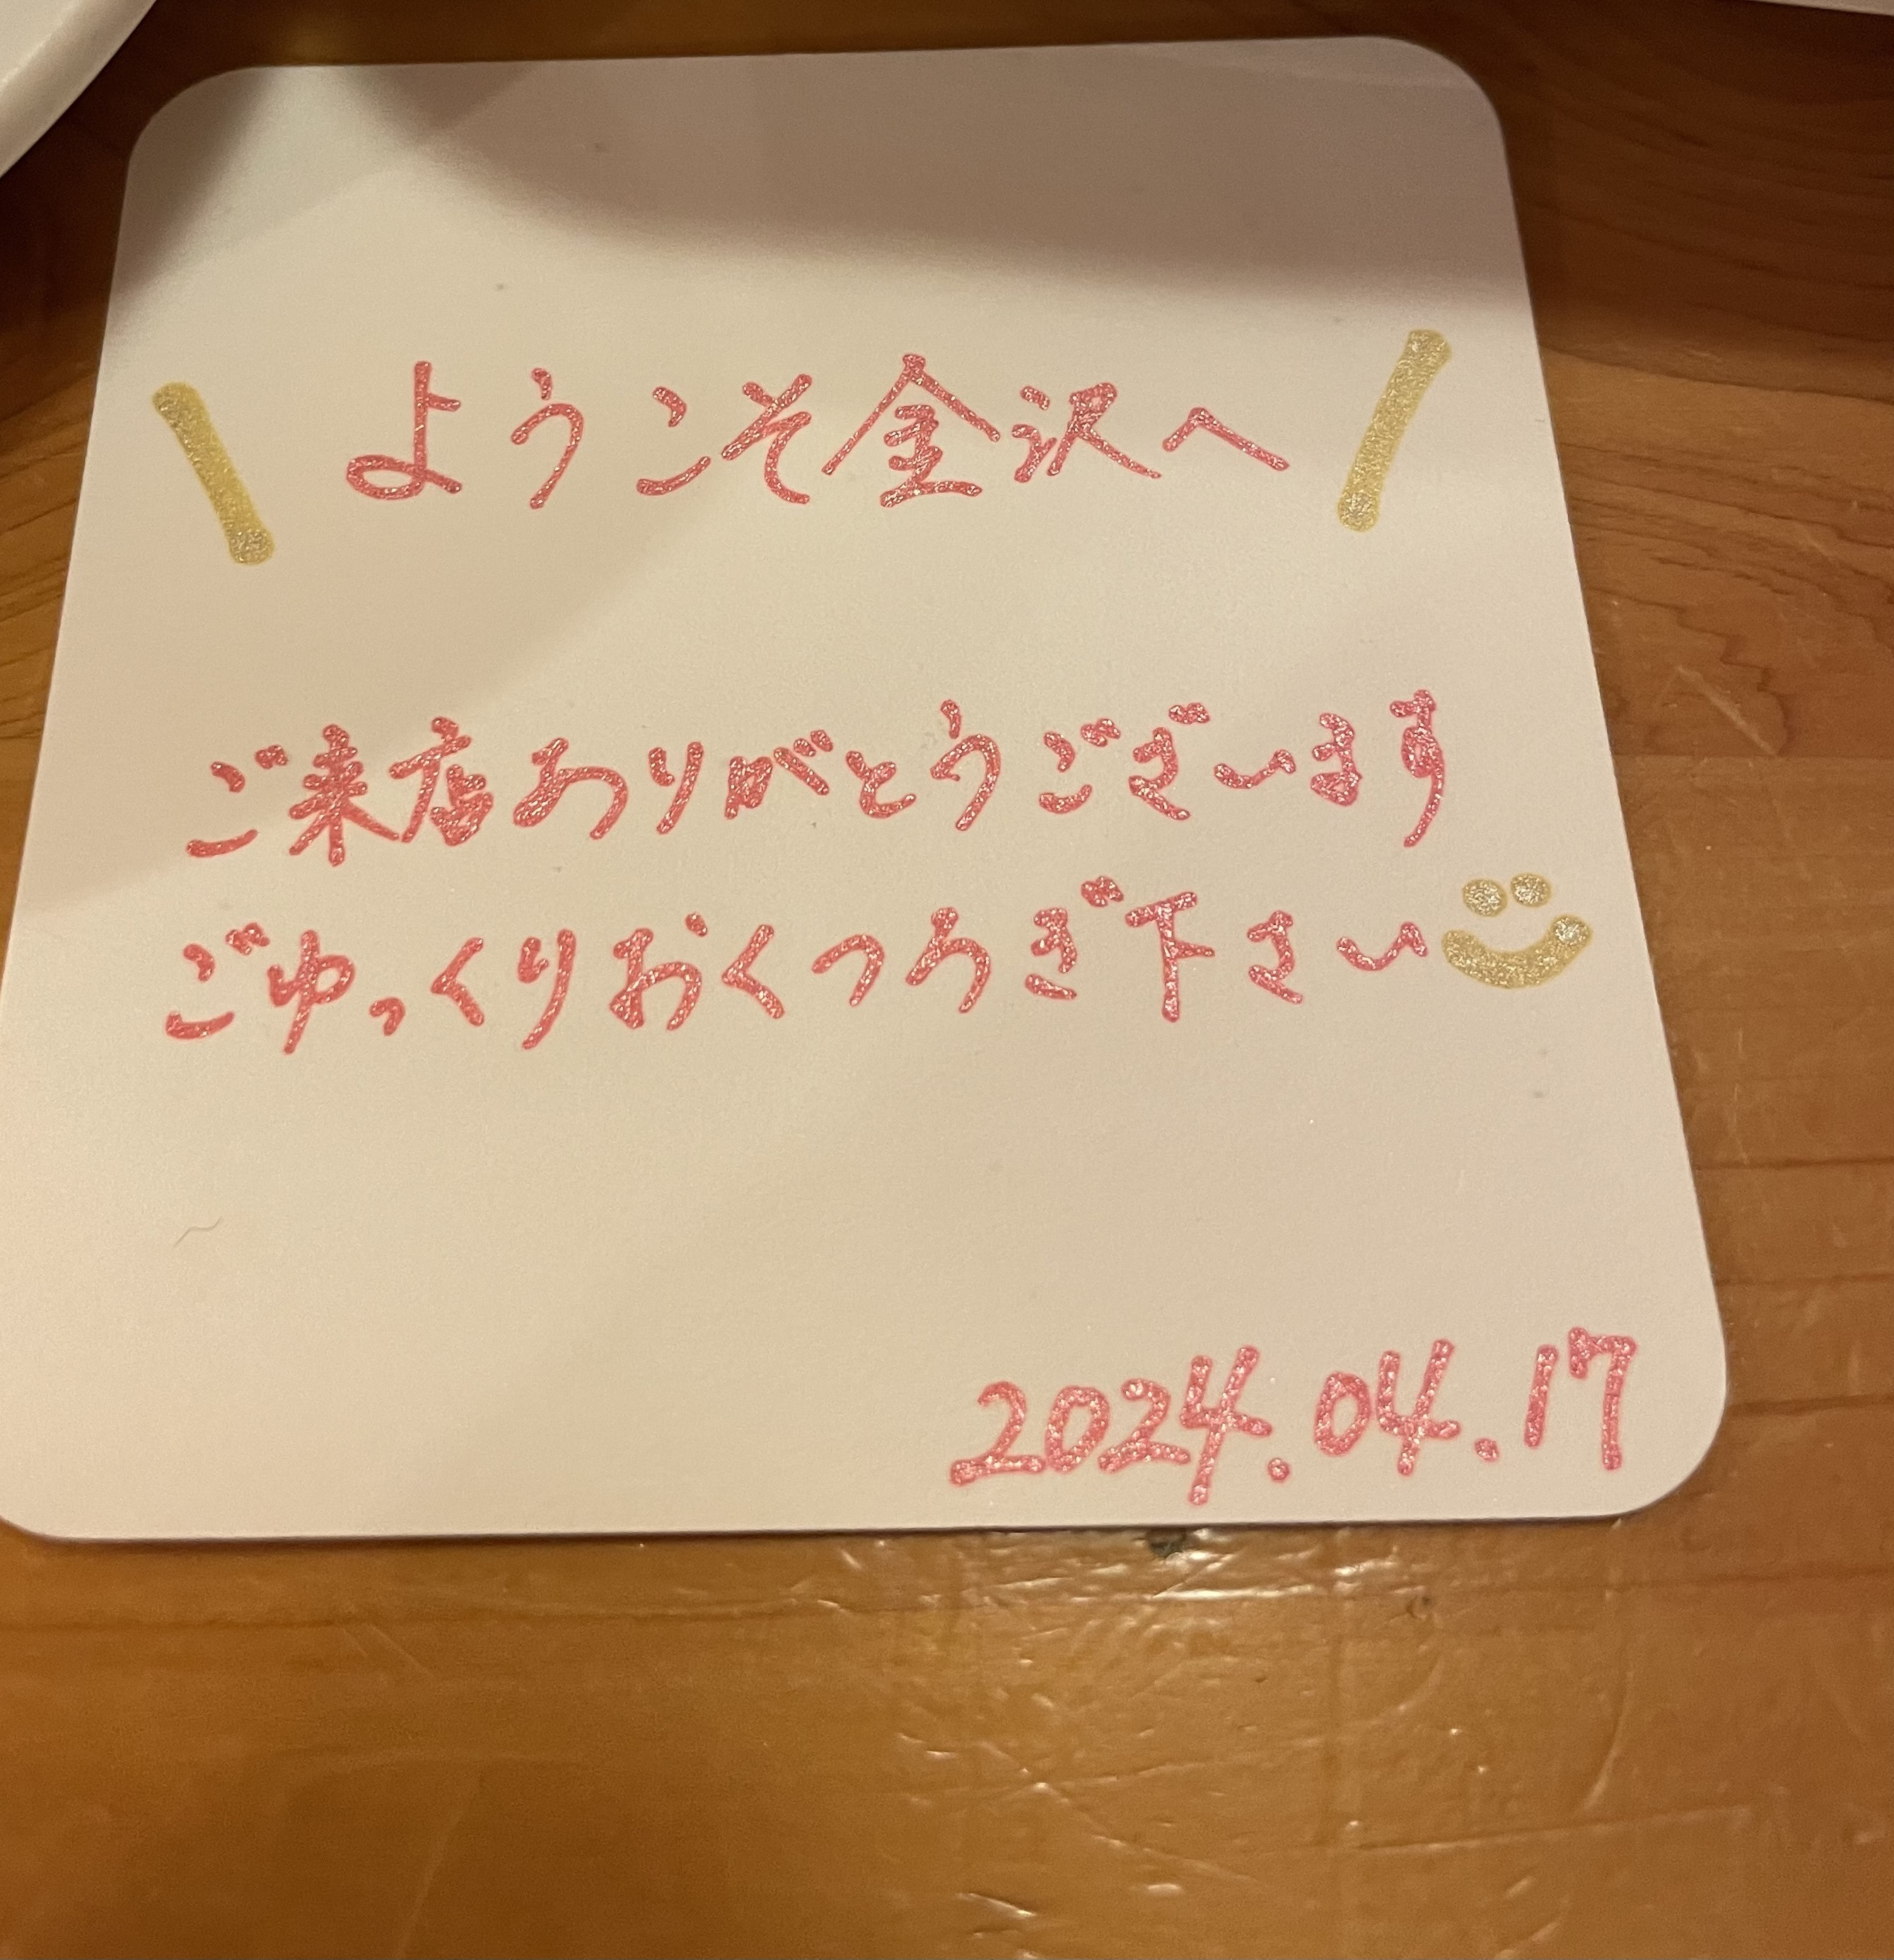 \ ようこそ金沢へ /
ご来店ありがとうございます
ごゆっくりおくつろぎ下さい
2024.04.17